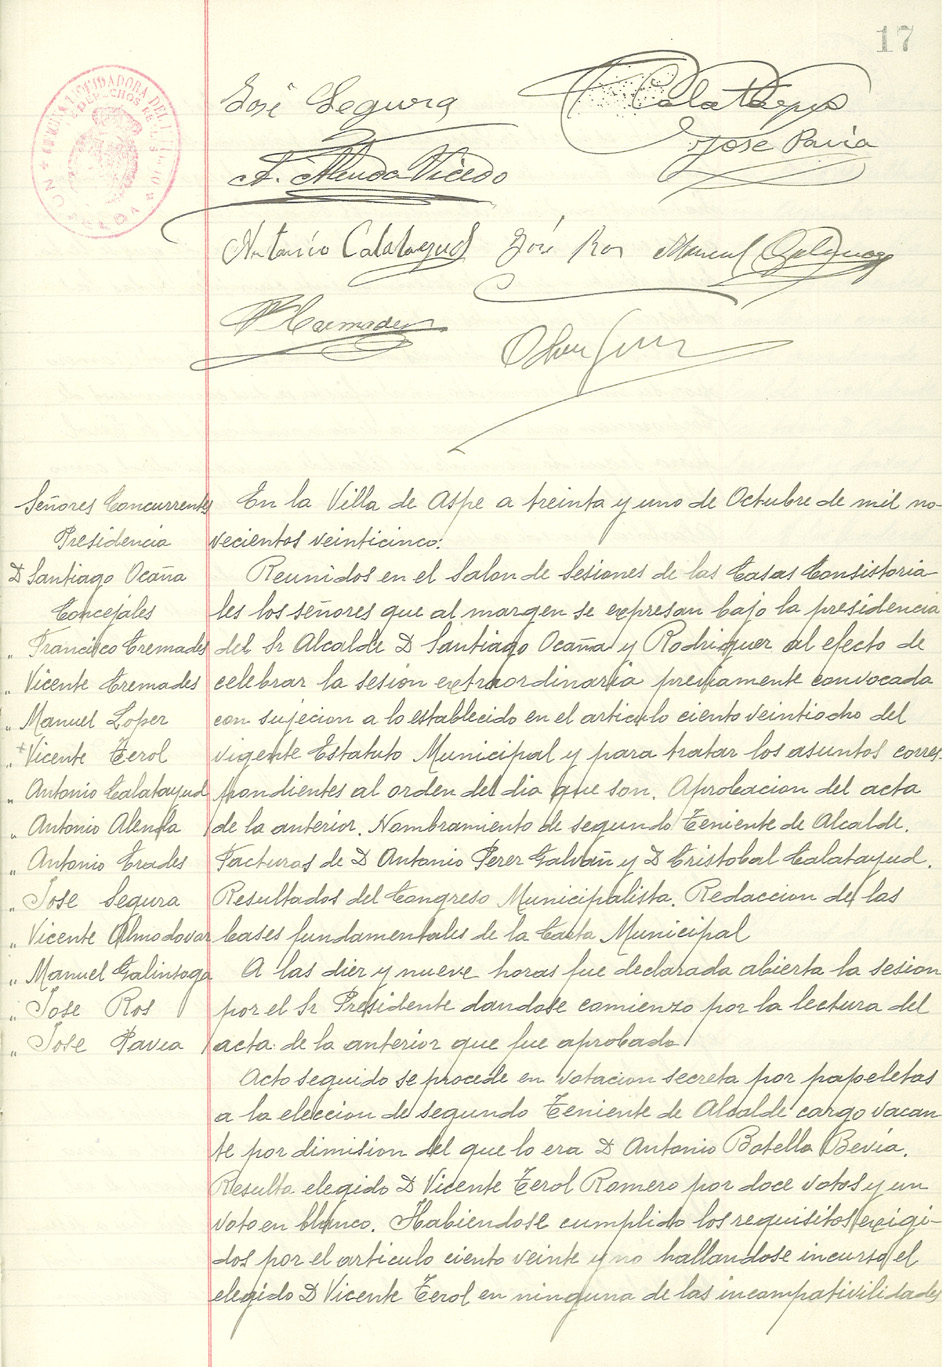 17
José Segura
Calatayud
José Pavia
A. Alenda Vicedo
Antonio Calatayud José Ros Manuel Galinsoga
V Cremades
NOVELDA
Señores Concurrentes
Presidencia
D Santiago Ocaña
Concejales
" Francisco Cremades
" Vicente Cremades
" Manuel Loper
" Vicente Cerol
" Antonio Calatayud
" Antonio Alenda
" Antonio Erades
" Jose Segura
" Vicente Almodovar
" Manuel Galinsoga
" Jose Ros
" Jose Pavia
En la Villa de Aspe a treinta y uno de Octubre de mil no-
vecientos veinticinco.
Reunidos en el Salon de Sesiones de las Casas Consistoria-
les los señores que al margen se expresan bajo la presidencia
del Sr Alcalde D Santiago Ocaña y Rodriguer al efecto de
celebrar la sesion extraordinaria previamente convocada
con sujecion a lo establecido en el articulo ciento veintiocho del
vigente Estatuto Municipal y para tratar los asuntos corres-
pondientes al orden del dia que son. Aprobacion del acta
de la anterior. Nombramiento de segundo Teniente de Alcalde.
Facturas de D Antonio Perer Galvañ y D Cristobal Calatayud.
Resultados del Congreso Municipalista. Redaccion de las
bases fundamentales de la Carta Municipal
A las dier y nueve horas fue declarada abierta la sesion
por el Sr Presidente dandose comienzo por la lectura del
acta de la anterior que fue aprobada
Acto seguido se procede en votacion secreta por papeletas
a la eleccion de segundo Teniente de Alcalde cargo vacan-
te por dimision del que lo era D Antonio Botella Bevia.
Resulta elegido D Vicente Cerol Romero por doce votos y un
voto en blanco. Habiendose cumplido los requisitos exigi-
dos por el articulo ciento veinte y no hallandose incurso el
elegido D Vicente Cerol en ninguna de las incompativilidades